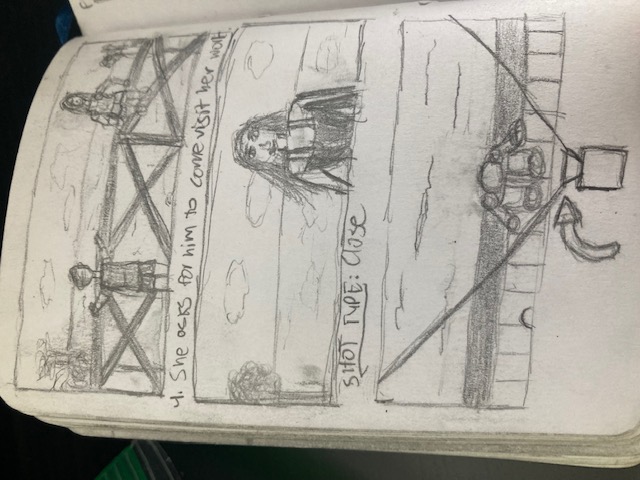 4. She asks for him to come visit her work
SHOT TYPE: Close